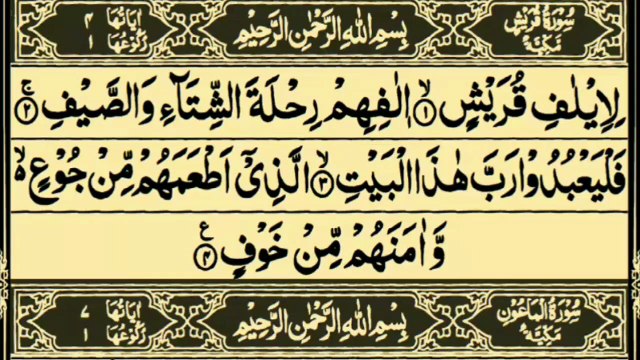 سُوْرَةُ قُرَيْشٍ مَكِّيَّةٌ بِسْمِ اللّٰهِ الرَّحْمٰنِ الرَّحِيْمِ اٰيَاتُهَا ٤ رُكُوْعُهَا ١
لِاِيْلٰفِ قُرَيْشٍ ۙ﴿۱﴾ اٖلٰفِهِمْ رِحْلَةَ الشِّتَآءِ وَالصَّيْفِ ۚ﴿۲﴾
فَلْيَعْبُدُوْا رَبَّ هٰذَا الْبَيْتِ ۙ﴿۳﴾ الَّذِیْۤ اَطْعَمَهُمْ مِّنْ جُوْعٍ ۙ
وَّاٰمَنَهُمْ مِّنْ خَوْفٍ ﴿۴﴾ ع
سُوْرَةُ الْمَاعُوْنِ مَكِّيَّةٌ بِسْمِ اللّٰهِ الرَّحْمٰنِ الرَّحِيْمِ اٰيَاتُهَا ٧ رُكُوْعُهَا ١